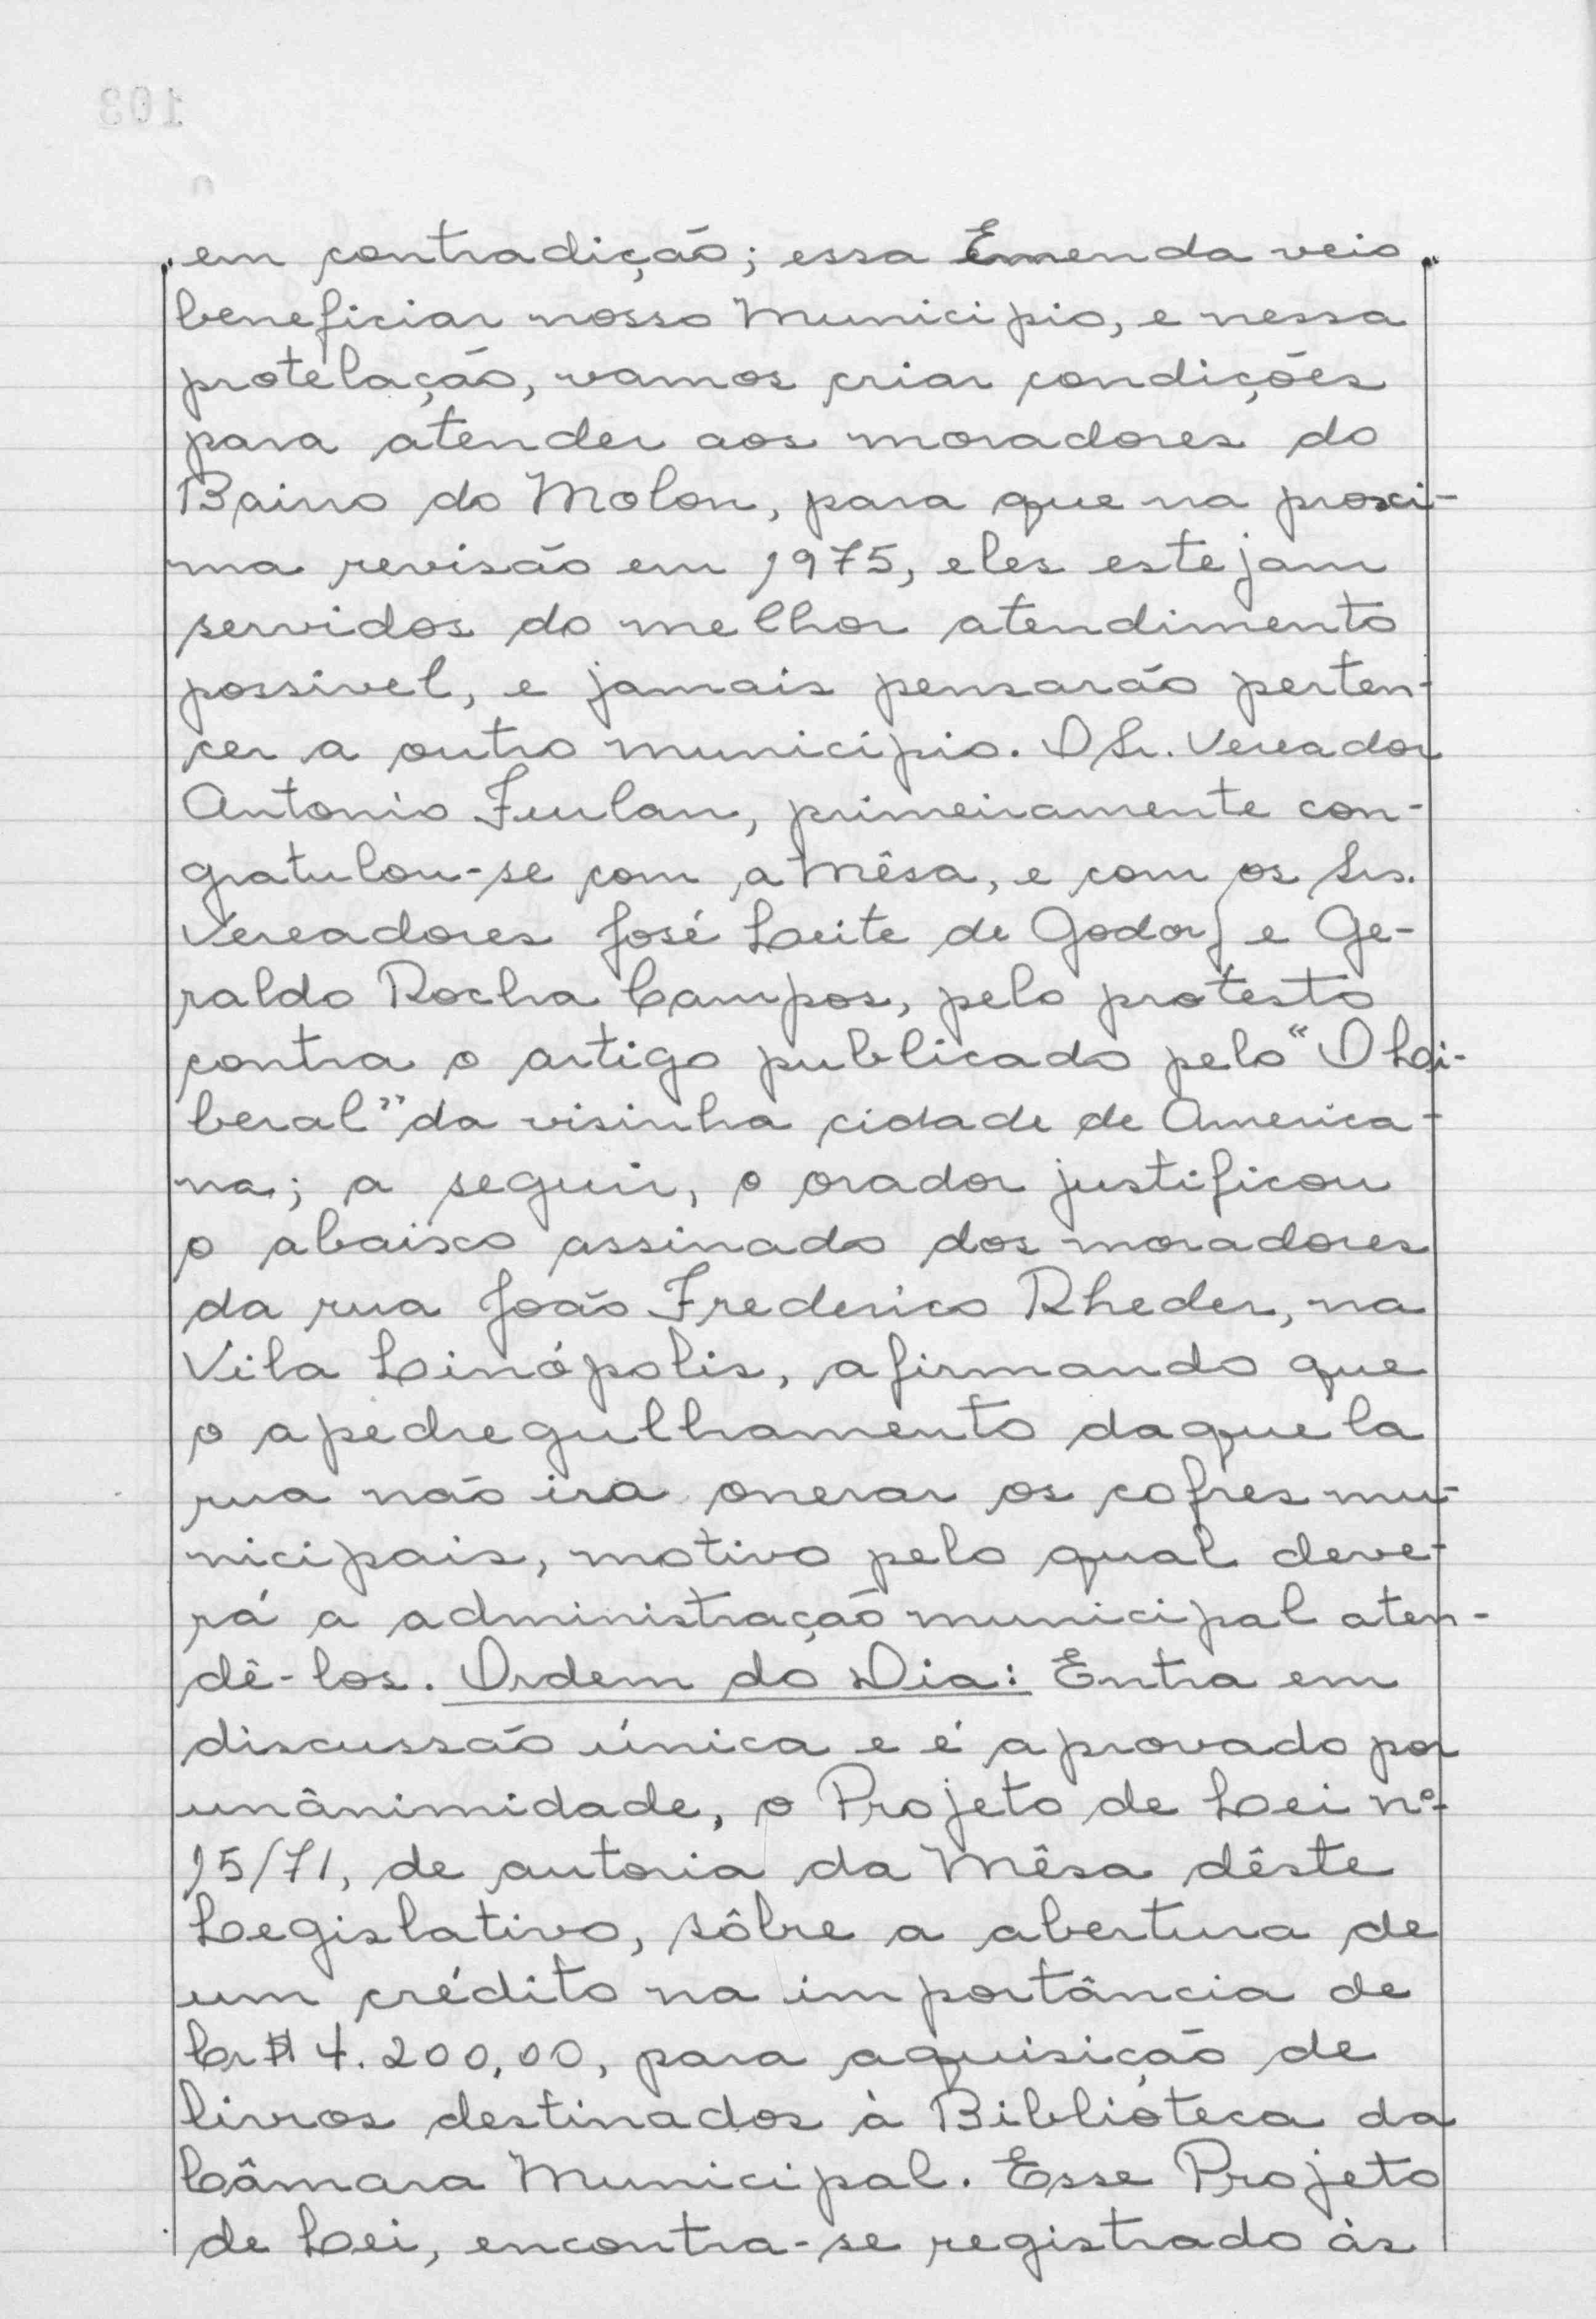 em contradição; essa Emenda veio
beneficiar nosso Municipio, e nessa
protelação, vamos criar condições
para atender aos moradores do
Bairro do Molon, para que na proxi-
ma revisão em 1975, eles estejam
servidos do melhor atendimento
possivel, e jamais pensarão perten-
cer a outro município. O Sr. Vereador
Antonio Furlan, primeiramente con-
gratulou-se com a Mêsa, e com os Srs.
Vereadores José Leite de Godoy e Ge-
raldo Rocha Campos, pelo protesto
contra o artigo publicado pelo "O Li-
beral" da visinha cidade de America-
na; a seguir, o orador justificou
o abaixo assinado dos moradores
da rua João Frederico Rheder, na
Vila Linópolis, afirmando que
o apedregulhamento daquela
rua não ira onerar os cofres mu-
nicipais, motivo pelo qual deve-
rá a administração municipal aten-
dê-los. Ordem do Dia: Entra em
discussão única e é aprovado por
unânimidade, o Projeto de Lei nº
15/71, de autoria da Mêsa dêste
Legislativo, sôbre a abertura de
um crédito na importância de
Cr$ 4.200,00, para aquisição de
livros destinados à Biblióteca da
Câmara Municipal. Esse Projeto
de Lei, encontra-se registrado às